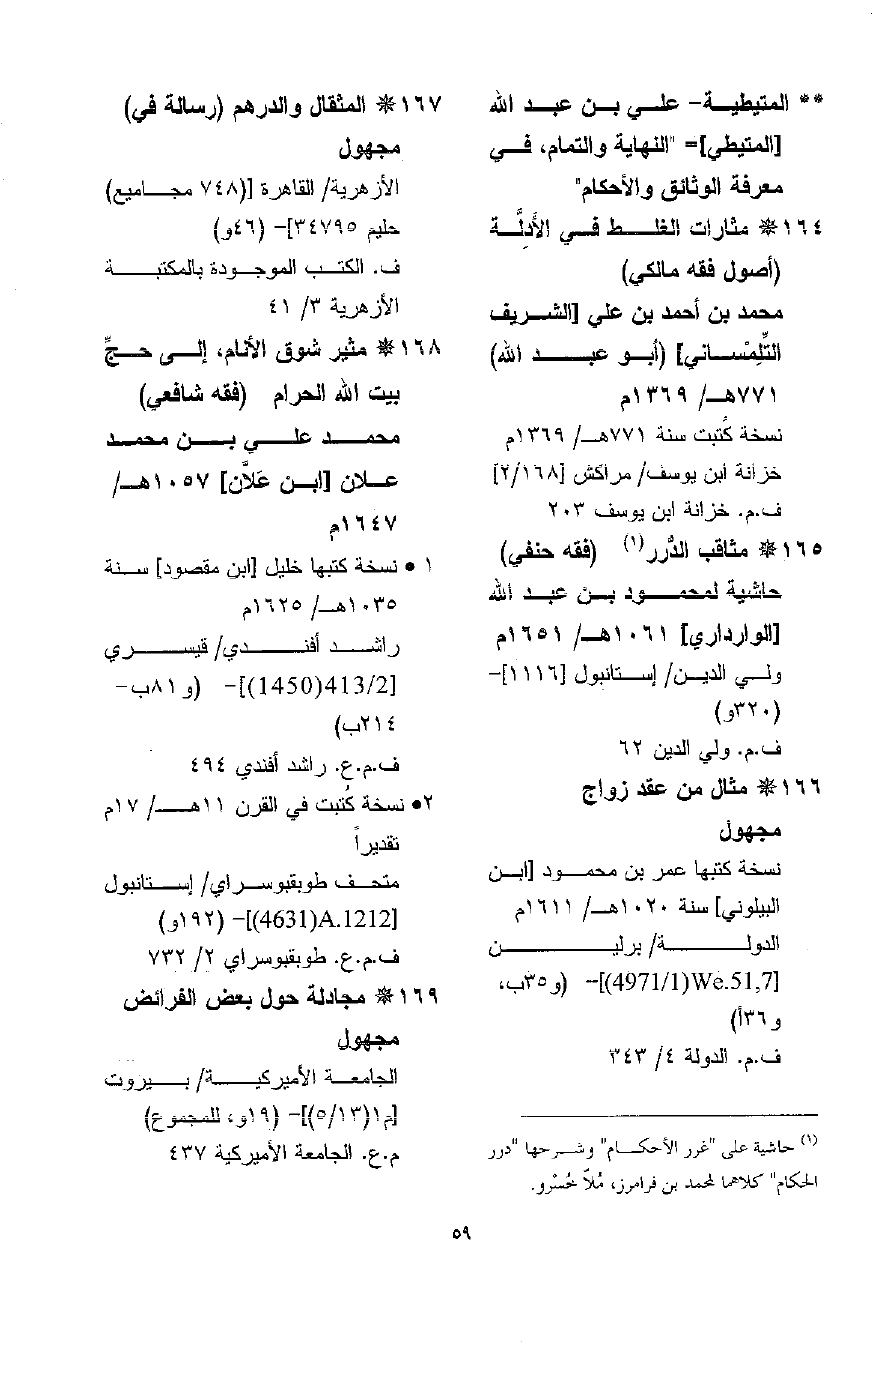 ** المتيطية- علي بن عبد الله
[المتيطي]= "النهاية والتمام، في
معرفة الوثائق والأحكام"
١٦٤ ❊ مثارات الغلط في الأدلَّة
(أصول فقه مالكي)
محمد بن أحمد بن علي [الشريف
التِّلِمْساني] (أبو عبد الله)
٧٧١هـ/ ١٣٦٩م
نسخة كُتبت سنة ٧٧١هـ/ ١٣٦٩م
خزانة ابن يوسف/ مراكش [٢/١٦٨]
ف.م. خزانة ابن يوسف ٢٠٣
١٦٥ ❊ مثاقب الدُّرر(١) (فقه حنفي)
حاشية لمحمود بن عبد الله
[الوارداري] ١٠٦١هـ/ ١٦٥١م
ولي الدين/ إستانبول [١١١٦]-
(٣٢٠و)
ف.م. ولي الدين ٦٢
١٦٦ ❊ مثال من عقد زواج
مجهول
نسخة كتبها عمر بن محمود [ابن
البيلوني] سنة ١٠٢٠هـ/ ١٦١١م
الدولة/ برلين
[We.51,7(4971/1)]- (و٣٥ب،
و٣٦أ)
ف.م. الدولة ٤/ ٣٤٣
(١) حاشية على "غرر الأحكام" وشرحها "درر
الحكام" كلاهما لمحمد بن فرامرز، مُلاّ خُسْرو.
١٦٧ ❊ المثقال والدرهم (رسالة في)
مجهول
الأزهرية/ القاهرة [(٧٤٨ مجاميع)
حليم ٣٤٧٩٥]- (٤٦و)
ف. الكتب الموجودة بالمكتبة
الأزهرية ٣/ ٤١
١٦٨ ❊ مثير شوق الأنام، إلى حجِّ
بيت الله الحرام (فقه شافعي)
محمد علي بن محمد
علان [ابن عَلاَّن] ١٠٥٧هـ/
١٦٤٧م
١ • نسخة كتبها خليل [ابن مقصود] سنة
١٠٣٥هـ/ ١٦٢٥م
راشد أفندي/ قيسري
[413/2(1450)]- (و٨١ب-
٢١٤ب)
ف.م.ع. راشد أفندي ٤٩٤
٢• نسخة كُتبت في القرن ١١هـ/ ١٧م
تقديراً
متحف طوبقبوسراي/ إستانبول
[A.1212(4631)]- (١٩٢و)
ف.م.ع. طوبقبوسراي ٢/ ٧٣٢
١٦٩ ❊ مجادلة حول بعض الفرائض
مجهول
الجامعة الأميركية/ بيروت
[م١(٥/١٣)]- (١٩و، للمجموع)
م.ع. الجامعة الأميركية ٤٣٧
٥٩